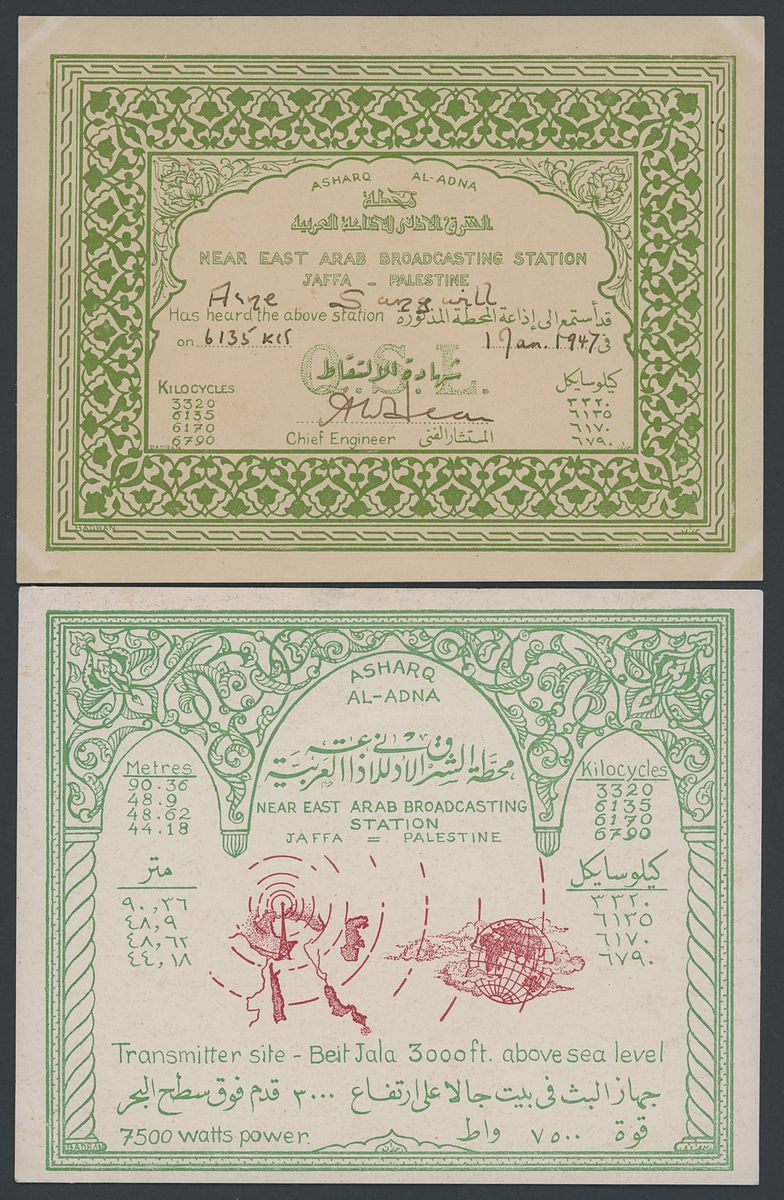 ASHARQ AL-ADNA
محطة
الشرق الأدنى للإذاعة العربية
NEAR EAST ARAB BROADCASTING STATION
JAFFA - PALESTINE
Arne
Has heard the above station قد أستمع إلى إذاعة المحطة المذكورة
on 6135 kcs 1 Jan. 1947 في
Q.S.L.
شهادة للالتقاط
KILOCYCLES
3320
6135
6170
6790
كيلوسايكل
٣٣٢٠
٦١٣٥
٦١٧٠
٦٧٩٠
Chief Engineer المستشار الفني
BADRAN بدران
BADRAN بدران
ASHARQ
AL-ADNA
محطة الشرق الأدنى للإذاعة العربية
NEAR EAST ARAB BROADCASTING
STATION
JAFFA = PALESTINE
Metres
90.36
48.9
48.62
44.18
Kilocycles
3320
6135
6170
6790
متر
٩٠,٣٦
٤٨,٩
٤٨,٦٢
٤٤,١٨
كيلوسايكل
٣٣٢٠
٦١٣٥
٦١٧٠
٦٧٩٠
Transmitter site - Beit Jala 3000ft. above sea level
جهاز البث في بيت جالا على ارتفاع ٣٠٠٠ قدم فوق سطح البحر
7500 watts power. قوة ٧٥٠٠ واط
BADRAN بدران